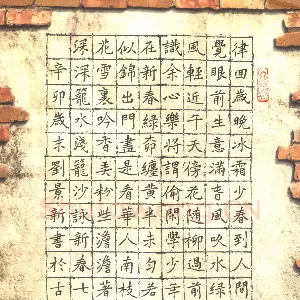 律回歲晚冰霜少春到人間
覺眼前生意滿東風吹水綠
風輕近午天傍花隨柳過前
識余心樂將謂偷閒學少年
在新春綠柳纔黃半未勻若
似錦出門盡是看花人南枝
花雪裏吟香弄粉些
深深籠水淺籠沙詠新
辛卯歲末劉景新書於古